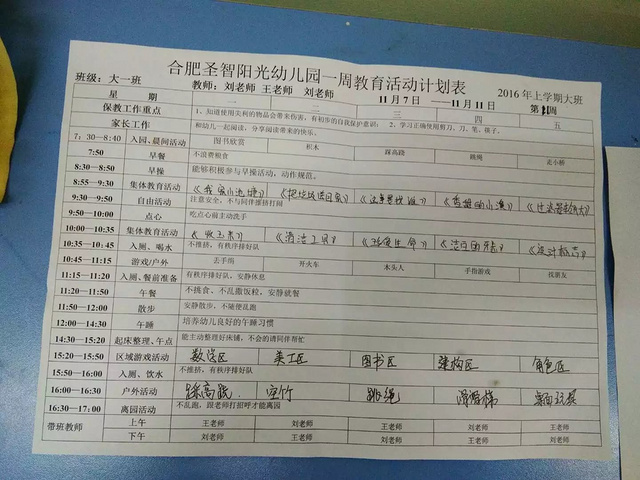 合肥圣智阳光幼儿园一周教育活动计划表
班级：大一班 教师：刘老师 王老师 刘老师 11月7日 —11月11日 2016年上学期大班 第 周
星 期 一 二 三 四 五
保教工作重点 1、知道使用尖利的物品会带来伤害，有初步的自我保护意识；2、学习正确使用剪刀、刀、笔、筷子。
家长工作 和幼儿一起阅读，分享阅读带来的快乐。
7：30—8:40 入园、晨间活动 图书欣赏 积木 踩高跷 跳绳 走小桥
7:50 早餐 不浪费粮食
8:30—8:50 早操 能够积极参与早操活动，动作规范。
8:55—9:30 集体教育活动
9:30—9:50 自由活动 注意安全，不与同伴推搡打闹
9:50—10:00 点心 吃点心前主动洗手
10:00—10:35 集体教育活动 《收玉米》 《清洁工具》
10:35—10:45 入厕、喝水 不推挤，有秩序排好队
10:45—11:15 游戏/户外 丢手绢 开火车 木头人 手指游戏 找朋友
11:15—11:20 入厕、餐前准备 有秩序排好队，安静休息
11:20—11:50 午餐 不挑食、不乱撒饭粒，安静就餐
11:50—12:00 散步 安静散步，不随便乱跑
12:00—14:30 午睡 培养幼儿良好的午睡习惯
14:30—15:20 起床整理、午点 能主动整理好床铺，不会的请同伴帮忙
15:20—15:50 区域游戏活动 数学区 美工区 图书区 建构区 角色区
15:50—16:00 入厕、饮水 不推挤，有秩序排好队
16:00—16:30 户外活动 踩高跷 空竹 跳绳 滑滑梯 桌面玩具
16:30—17:00 离园活动 不乱跑，跟老师打招呼才能离园
带班教师 上午 王老师 刘老师 王老师 刘老师 王老师
下午 刘老师 王老师 刘老师 王老师 刘老师